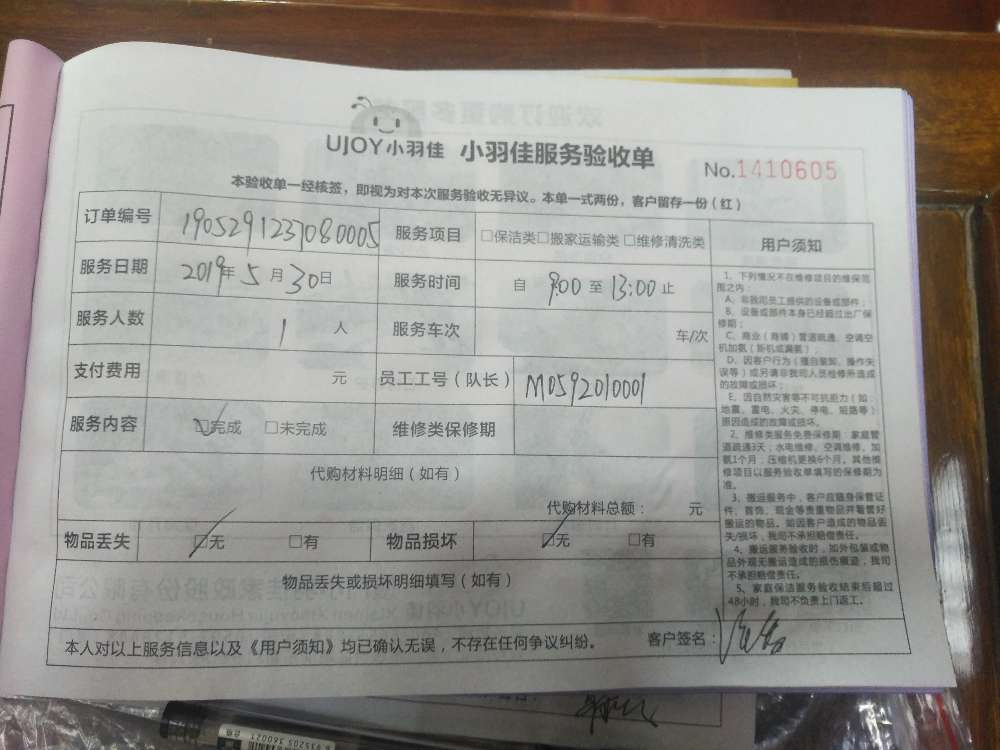 UJOY小羽佳 小羽佳服务验收单
No.1410605
本验收单一经核签，即视为对本次服务验收无异议。本单一式两份，客户留存一份（红）
订单编号 1905291237080005 服务项目 □保洁类□搬家运输类 □维修清洗类
服务日期 2019年5月30日 服务时间 自 9:00 至 13:00 止
服务人数 1 人 服务车次 车/次
支付费用 元 员工工号（队长） M0592010001
服务内容 □完成 □未完成 维修类保修期
代购材料明细（如有）
代购材料总额： 元
物品丢失 □无 □有 物品损坏 □无 □有
物品丢失或损坏明细填写（如有）
本人对以上服务信息以及《用户须知》均已确认无误，不存在任何争议纠纷。 客户签名：
用户须知
1、下列情况不在维修项目的维保范
围之内：
A、非我司员工提供的设备或部件；
B、设备或部件本身已经超过出厂保
修期；
C、商业（商铺）管道疏通、空调空
机加氨（新机或漏氨）
D、因客户行为（擅自装卸、操作失
误等）或另请非我司人员检修所造成
的故障或损坏；
E、因自然灾害等不可抗拒力（如
地震、雷电、火灾、停电、短路等）
原因造成的故障或损坏。
2、维修类服务免费保修期：家庭管
道疏通3天；水电维修、空调维修、加
氨1个月；压缩机更换6个月。其他维
修项目以服务验收单填写的保修期为
准。
3、搬运服务中，客户应随身保管证
件、首饰、现金等贵重物品并看管好
搬运的物品。如因客户造成的物品丢
失/损坏，我司不承担赔偿责任。
4、搬运服务验收时，如外包装或物
品外观无搬运造成的损伤痕迹，我司
不承担赔偿责任。
5、家庭保洁服务验收结束后超过
48小时，我司不负责上门返工。